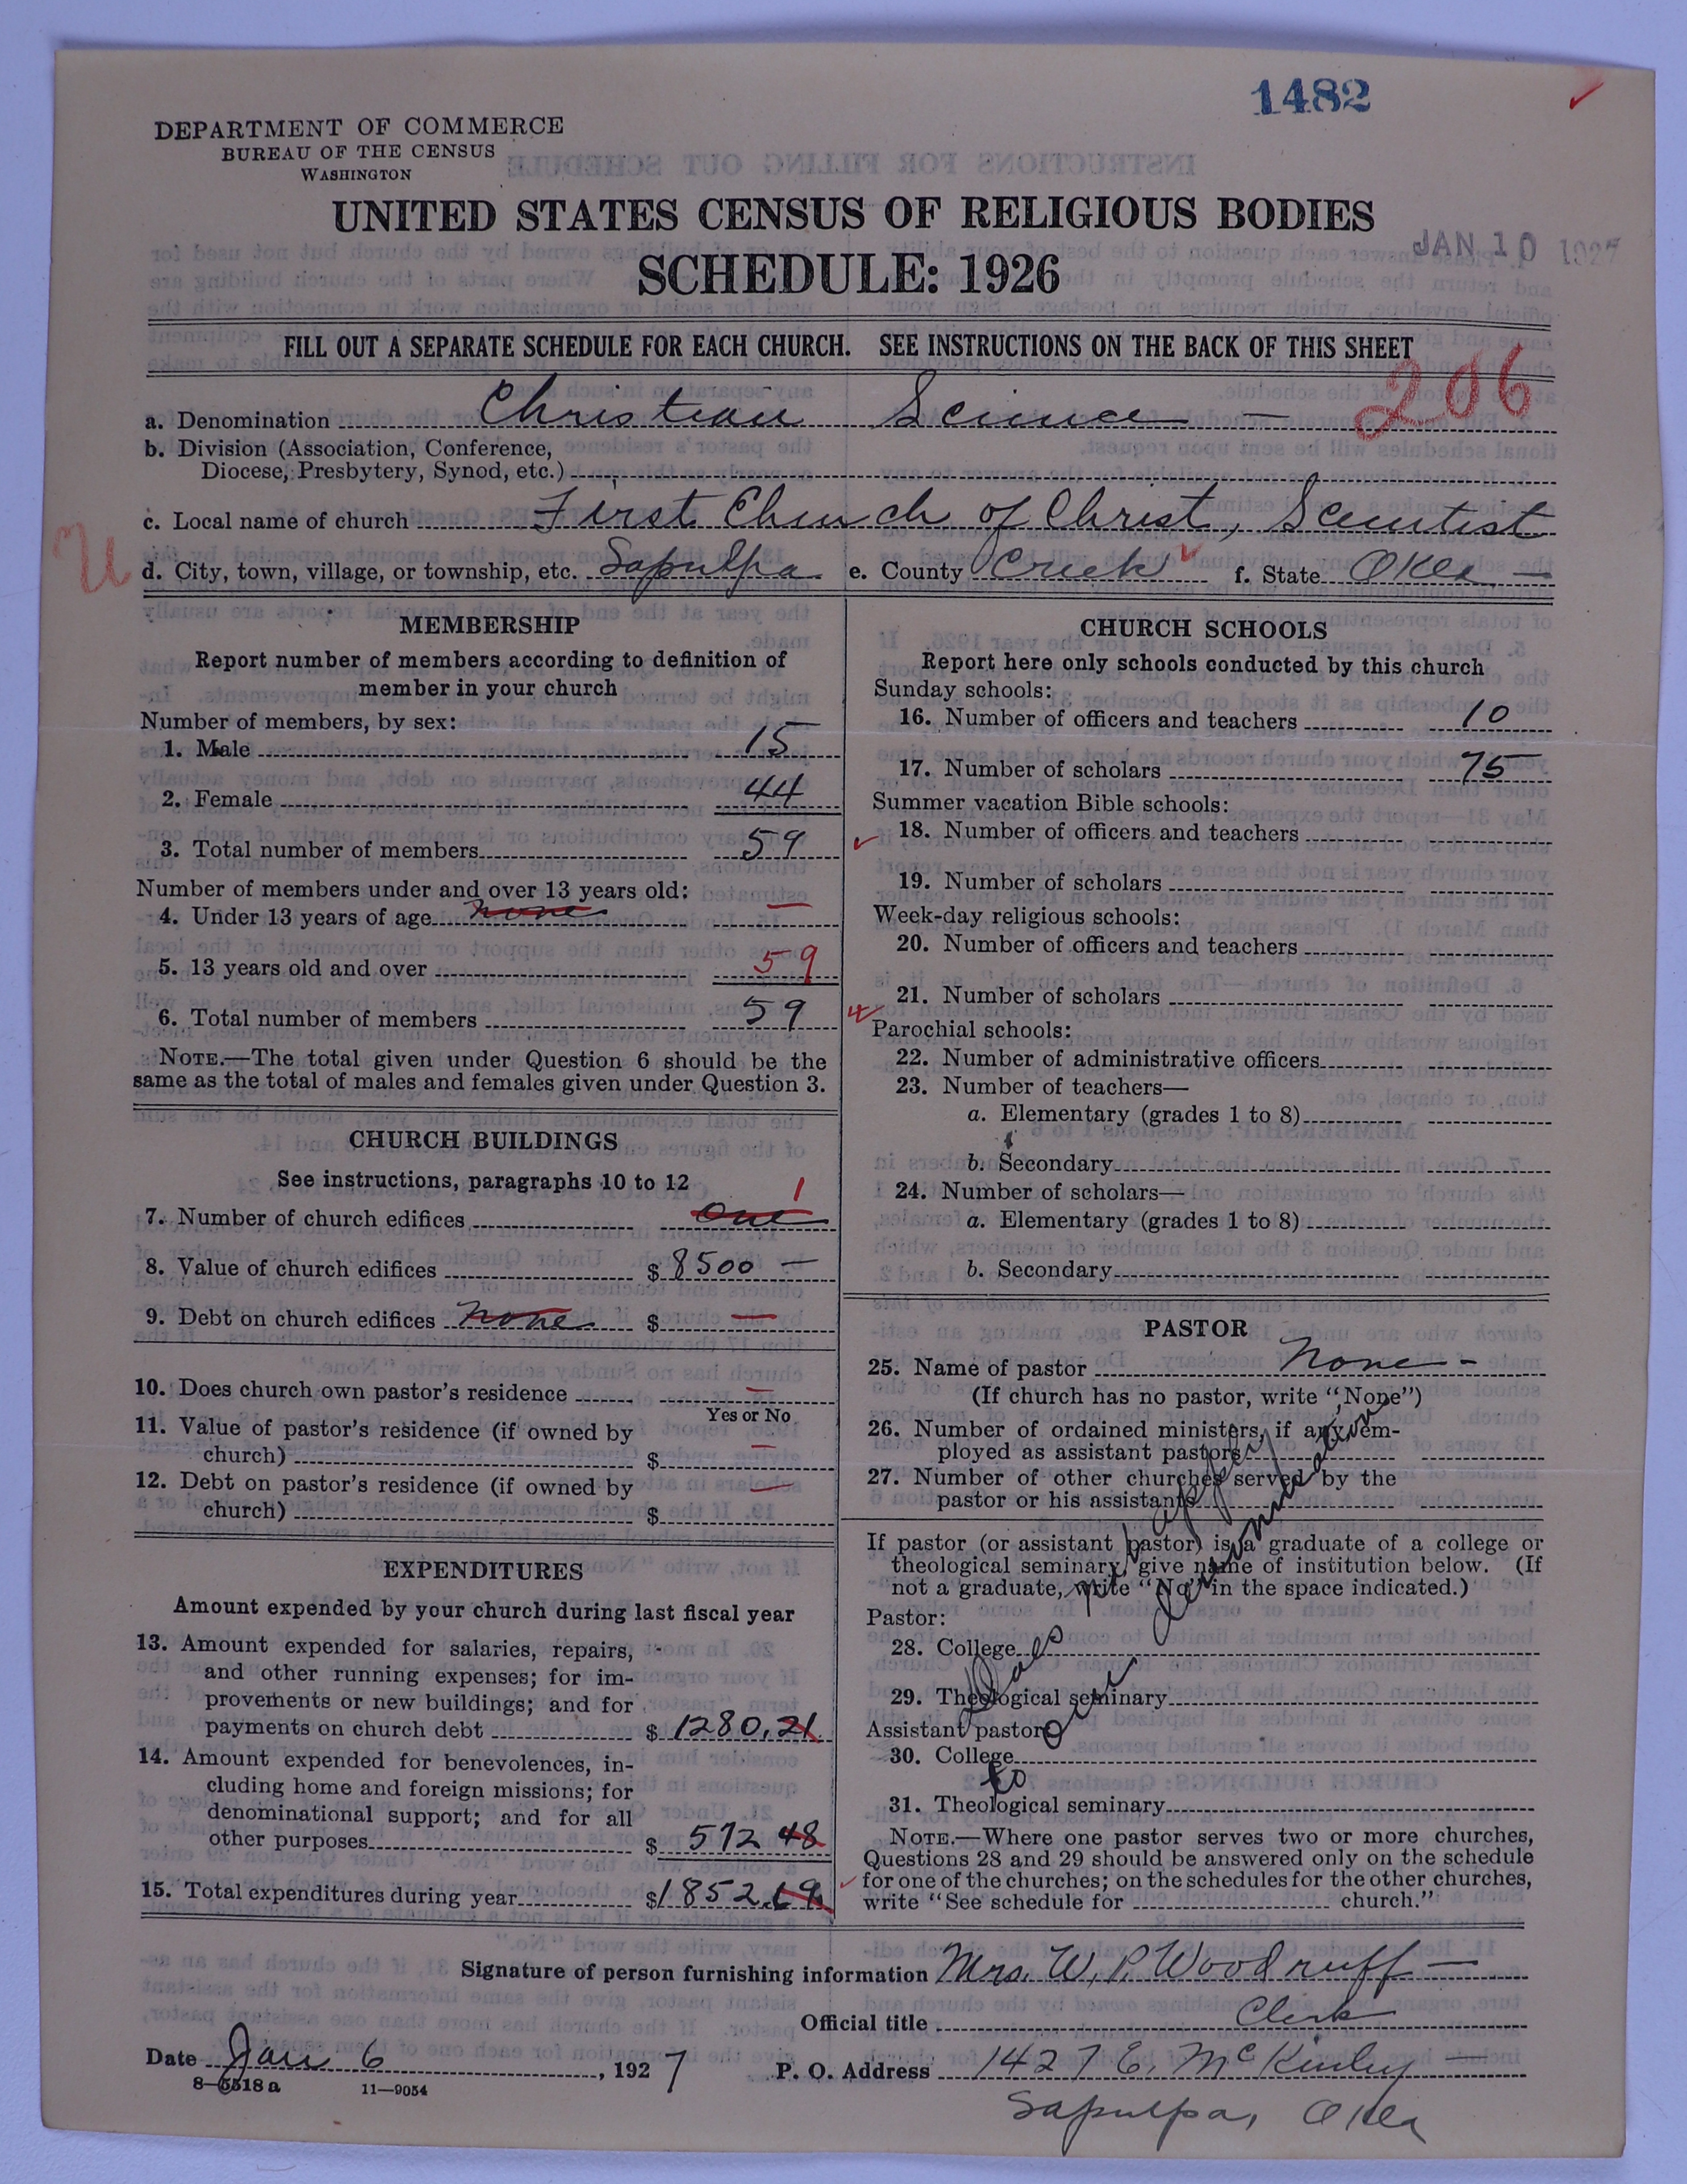 1482
DEPARTMENT OF COMMERCE
BUREAU OF THE CENSUS
WASHINGTON
UNITED STATES CENSUS OF RELIGIOUS BODIES
JAN 10 1927
SCHEDULE: 1926
FILL OUT A SEPARATE SCHEDULE FOR EACH CHURCH. SEE INSTRUCTIONS ON THE BACK OF THIS SHEET
206
a. Denomination Christian Science —
b. Division (Association, Conference,
Diocese, Presbytery, Synod, etc.)
c. Local name of church First Church of Christ, Scientist
U
d. City, town, village, or township, etc. Sapulpa e. County Creek f. State Okla. —
MEMBERSHIP
Report number of members according to definition of
member in your church
Number of members, by sex:
1. Male 15
2. Female 44
3. Total number of members 59
Number of members under and over 13 years old:
4. Under 13 years of age none —
5. 13 years old and over 59
6. Total number of members 59
NOTE.—The total given under Question 6 should be the
same as the total of males and females given under Question 3.
CHURCH BUILDINGS
See instructions, paragraphs 10 to 12
1
7. Number of church edifices one
8. Value of church edifices $ 8500 —
9. Debt on church edifices none $ —
10. Does church own pastor's residence —
Yes or No
11. Value of pastor's residence (if owned by
church) $ —
12. Debt on pastor's residence (if owned by
church) $ —
EXPENDITURES
Amount expended by your church during last fiscal year
13. Amount expended for salaries, repairs,
and other running expenses; for im-
provements or new buildings; and for
payments on church debt $ 1280.21
14. Amount expended for benevolences, in-
cluding home and foreign missions; for
denominational support; and for all
other purposes $ 572 48
15. Total expenditures during year $ 1852.69
CHURCH SCHOOLS
Report here only schools conducted by this church
Sunday schools:
16. Number of officers and teachers 10
17. Number of scholars 75
Summer vacation Bible schools:
18. Number of officers and teachers
19. Number of scholars
Week-day religious schools:
20. Number of officers and teachers
21. Number of scholars
Parochial schools:
22. Number of administrative officers
23. Number of teachers—
a. Elementary (grades 1 to 8)
b. Secondary
24. Number of scholars—
a. Elementary (grades 1 to 8)
b. Secondary
PASTOR
25. Name of pastor None -
(If church has no pastor, write "None")
26. Number of ordained ministers, if any, em-
ployed as assistant pastors
27. Number of other churches served by the
pastor or his assistants
If pastor (or assistant pastor) is a graduate of a college or
theological seminary, give name of institution below. (If
not a graduate, write "No" in the space indicated.)
Pastor:
28. College
29. Theological seminary
Assistant pastor:
30. College
31. Theological seminary
Does not apply
to our denomination
NOTE.—Where one pastor serves two or more churches,
Questions 28 and 29 should be answered only on the schedule
for one of the churches; on the schedules for the other churches,
write "See schedule for church."
Signature of person furnishing information Mrs. W. P. Woodruff —
Official title Clerk
Date Jan 6, 1927 P. O. Address 1427 E. McKinley —
8—5518 a 11—9054
Sapulpa, Okla